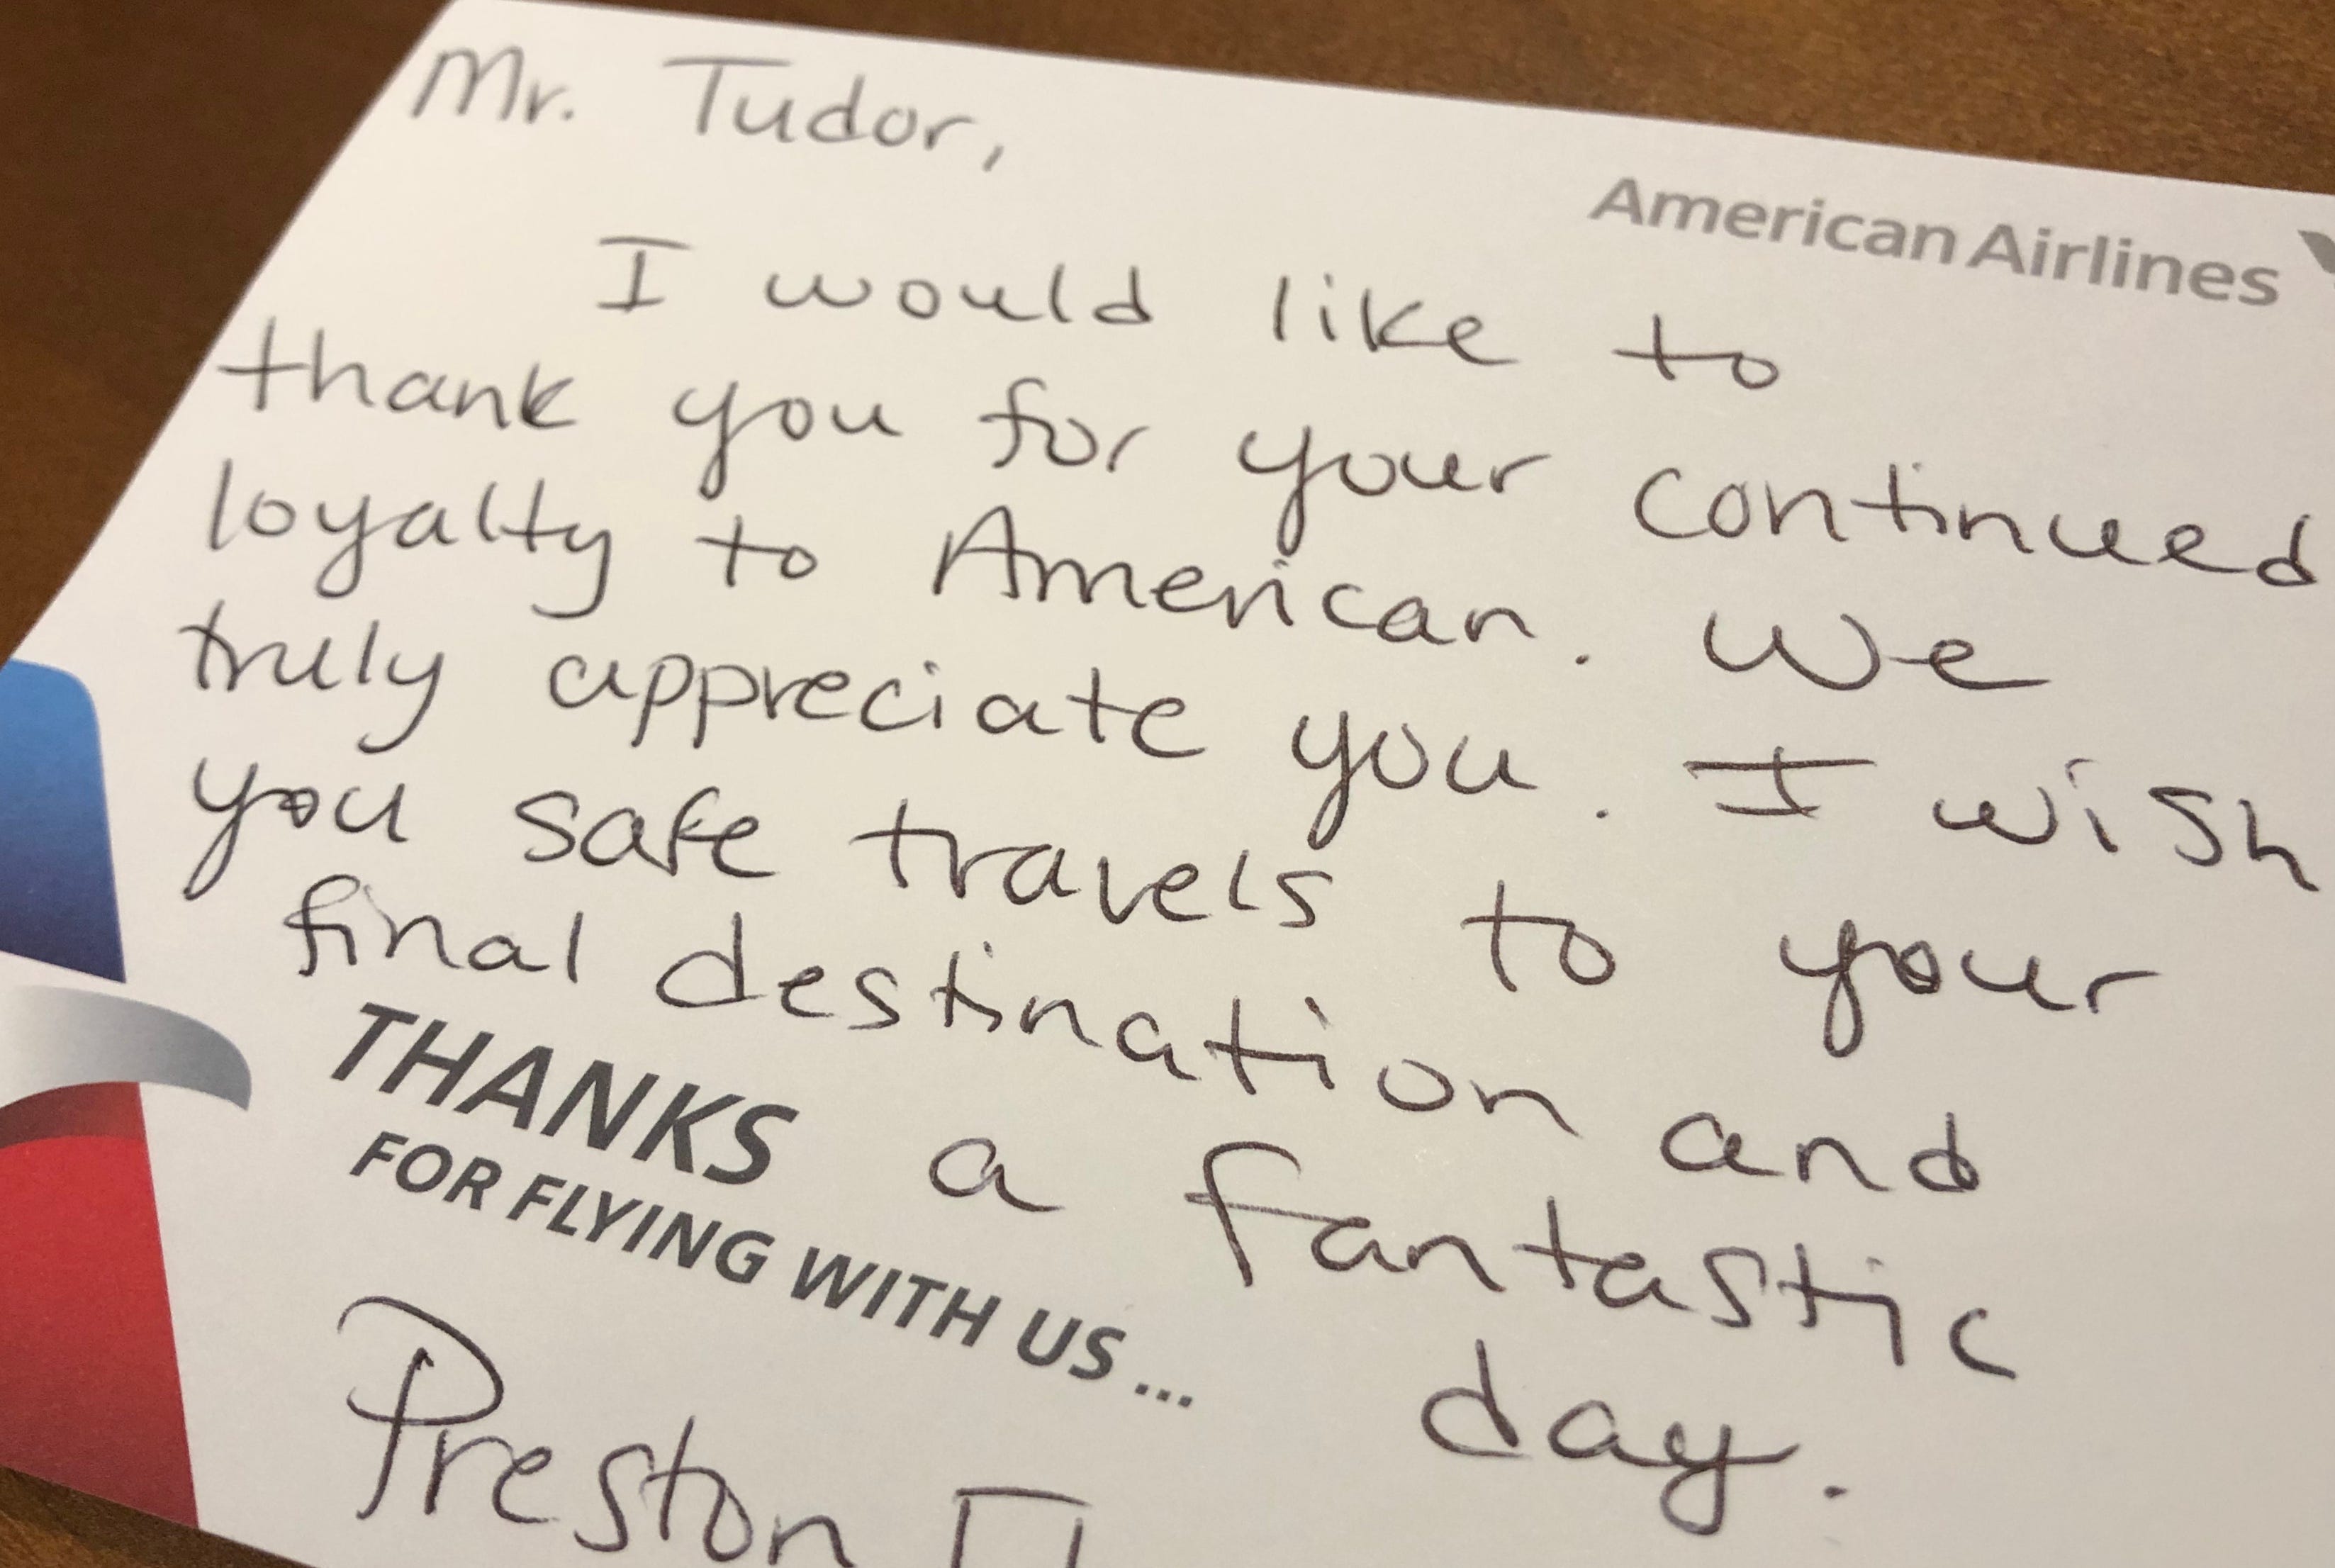 Mr. Tudor,
American Airlines
I would like to
thank you for your continued
loyalty to American. We
truly appreciate you. I wish
you safe travels to your
final destination and
a fantastic
day.
THANKS
FOR FLYING WITH US...
Preston